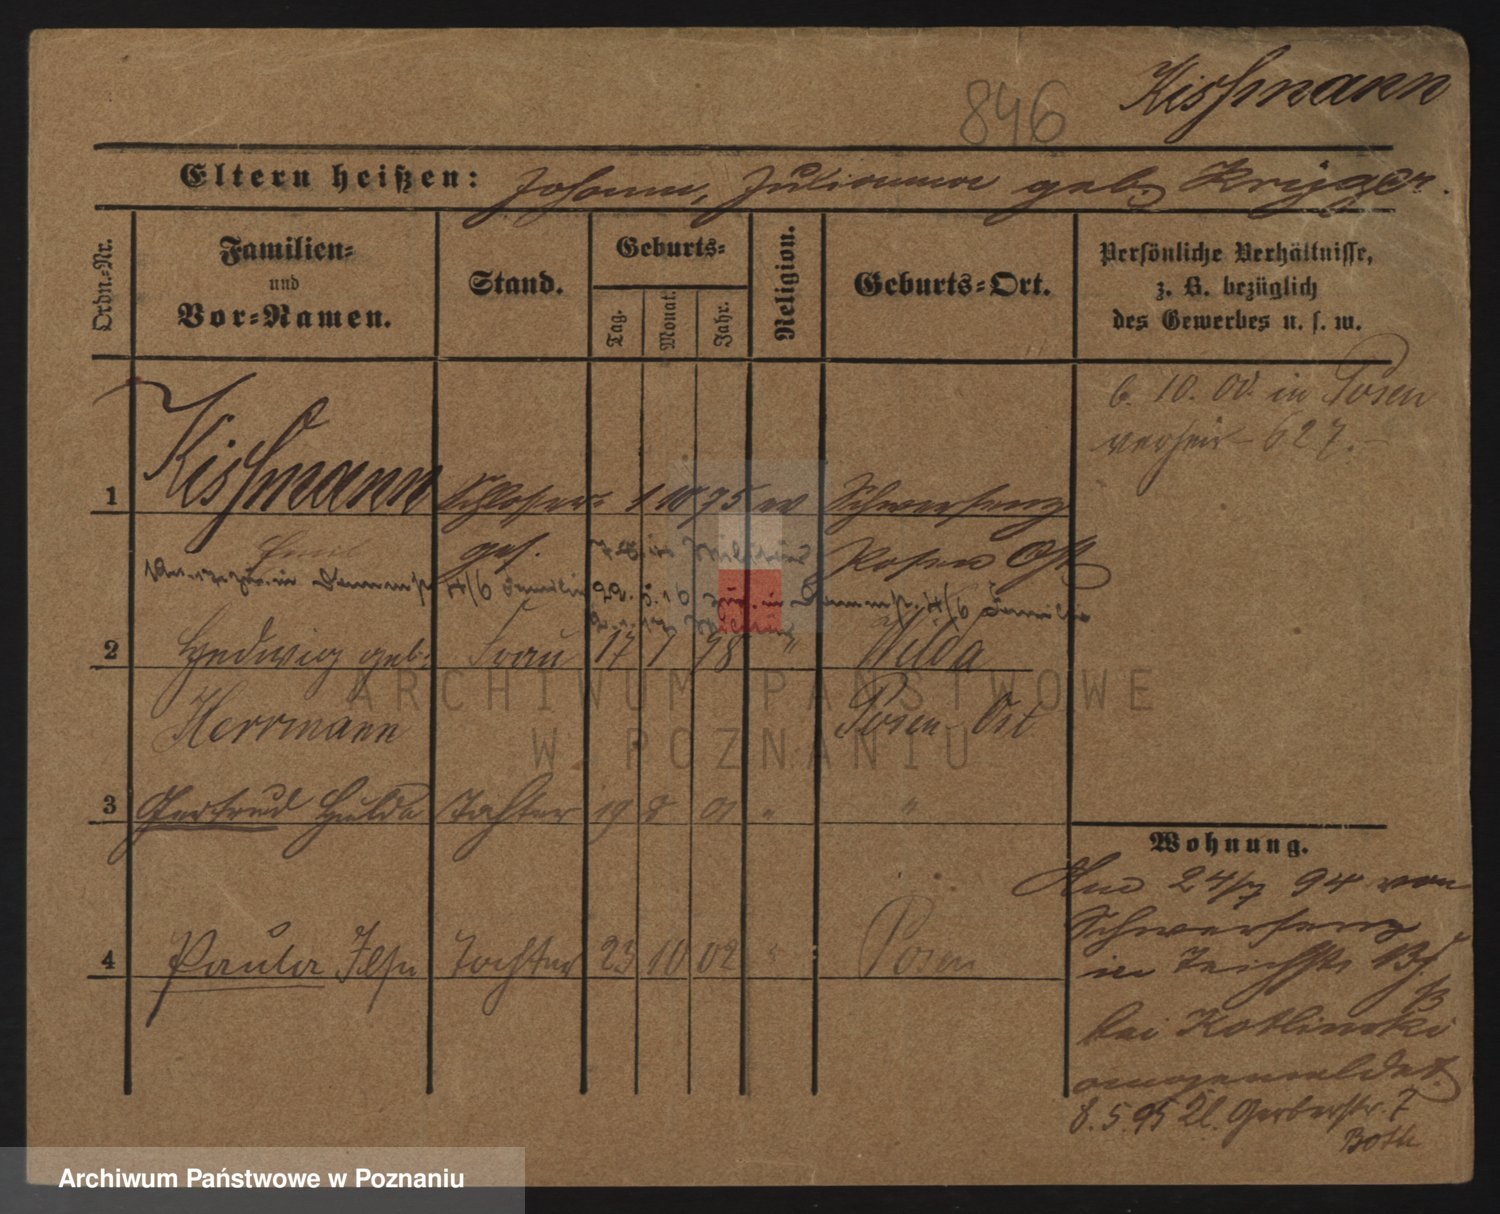 846
Kissmann
Eltern heißen: Johann, Julianna geb. Krüger.
Ordn.-Nr.
Familien-
und
Vor-Namen.
Stand.
Geburts-
Tag.
Monat.
Jahr.
Religion.
Geburts-Ort.
Persönliche Verhältnisse,
z. B. bezüglich
des Gewerbes u. s. w.
6. 10. 00. in Posen
verheir. 627.
1 Kissmann Schlosser 1 10 75 ev Schwersenz
Emil ges. Posen Ost
2 Hedwig geb. Frau 17 1 78 " Wilda
Herrmann Posen-Ost
3 Gertrud Hulda Tochter 19 8 01 " "
4 Paula Ilse Tochter 23 10 02 " Posen
Wohnung.
24/7 94 von
Schwersenz
in
bei Kotlinski
angemeldet.
8. 5. 95 Gerberstr. 7
Both
ARCHIWUM PAŃSTWOWE
W POZNANIU
Archiwum Państwowe w Poznaniu